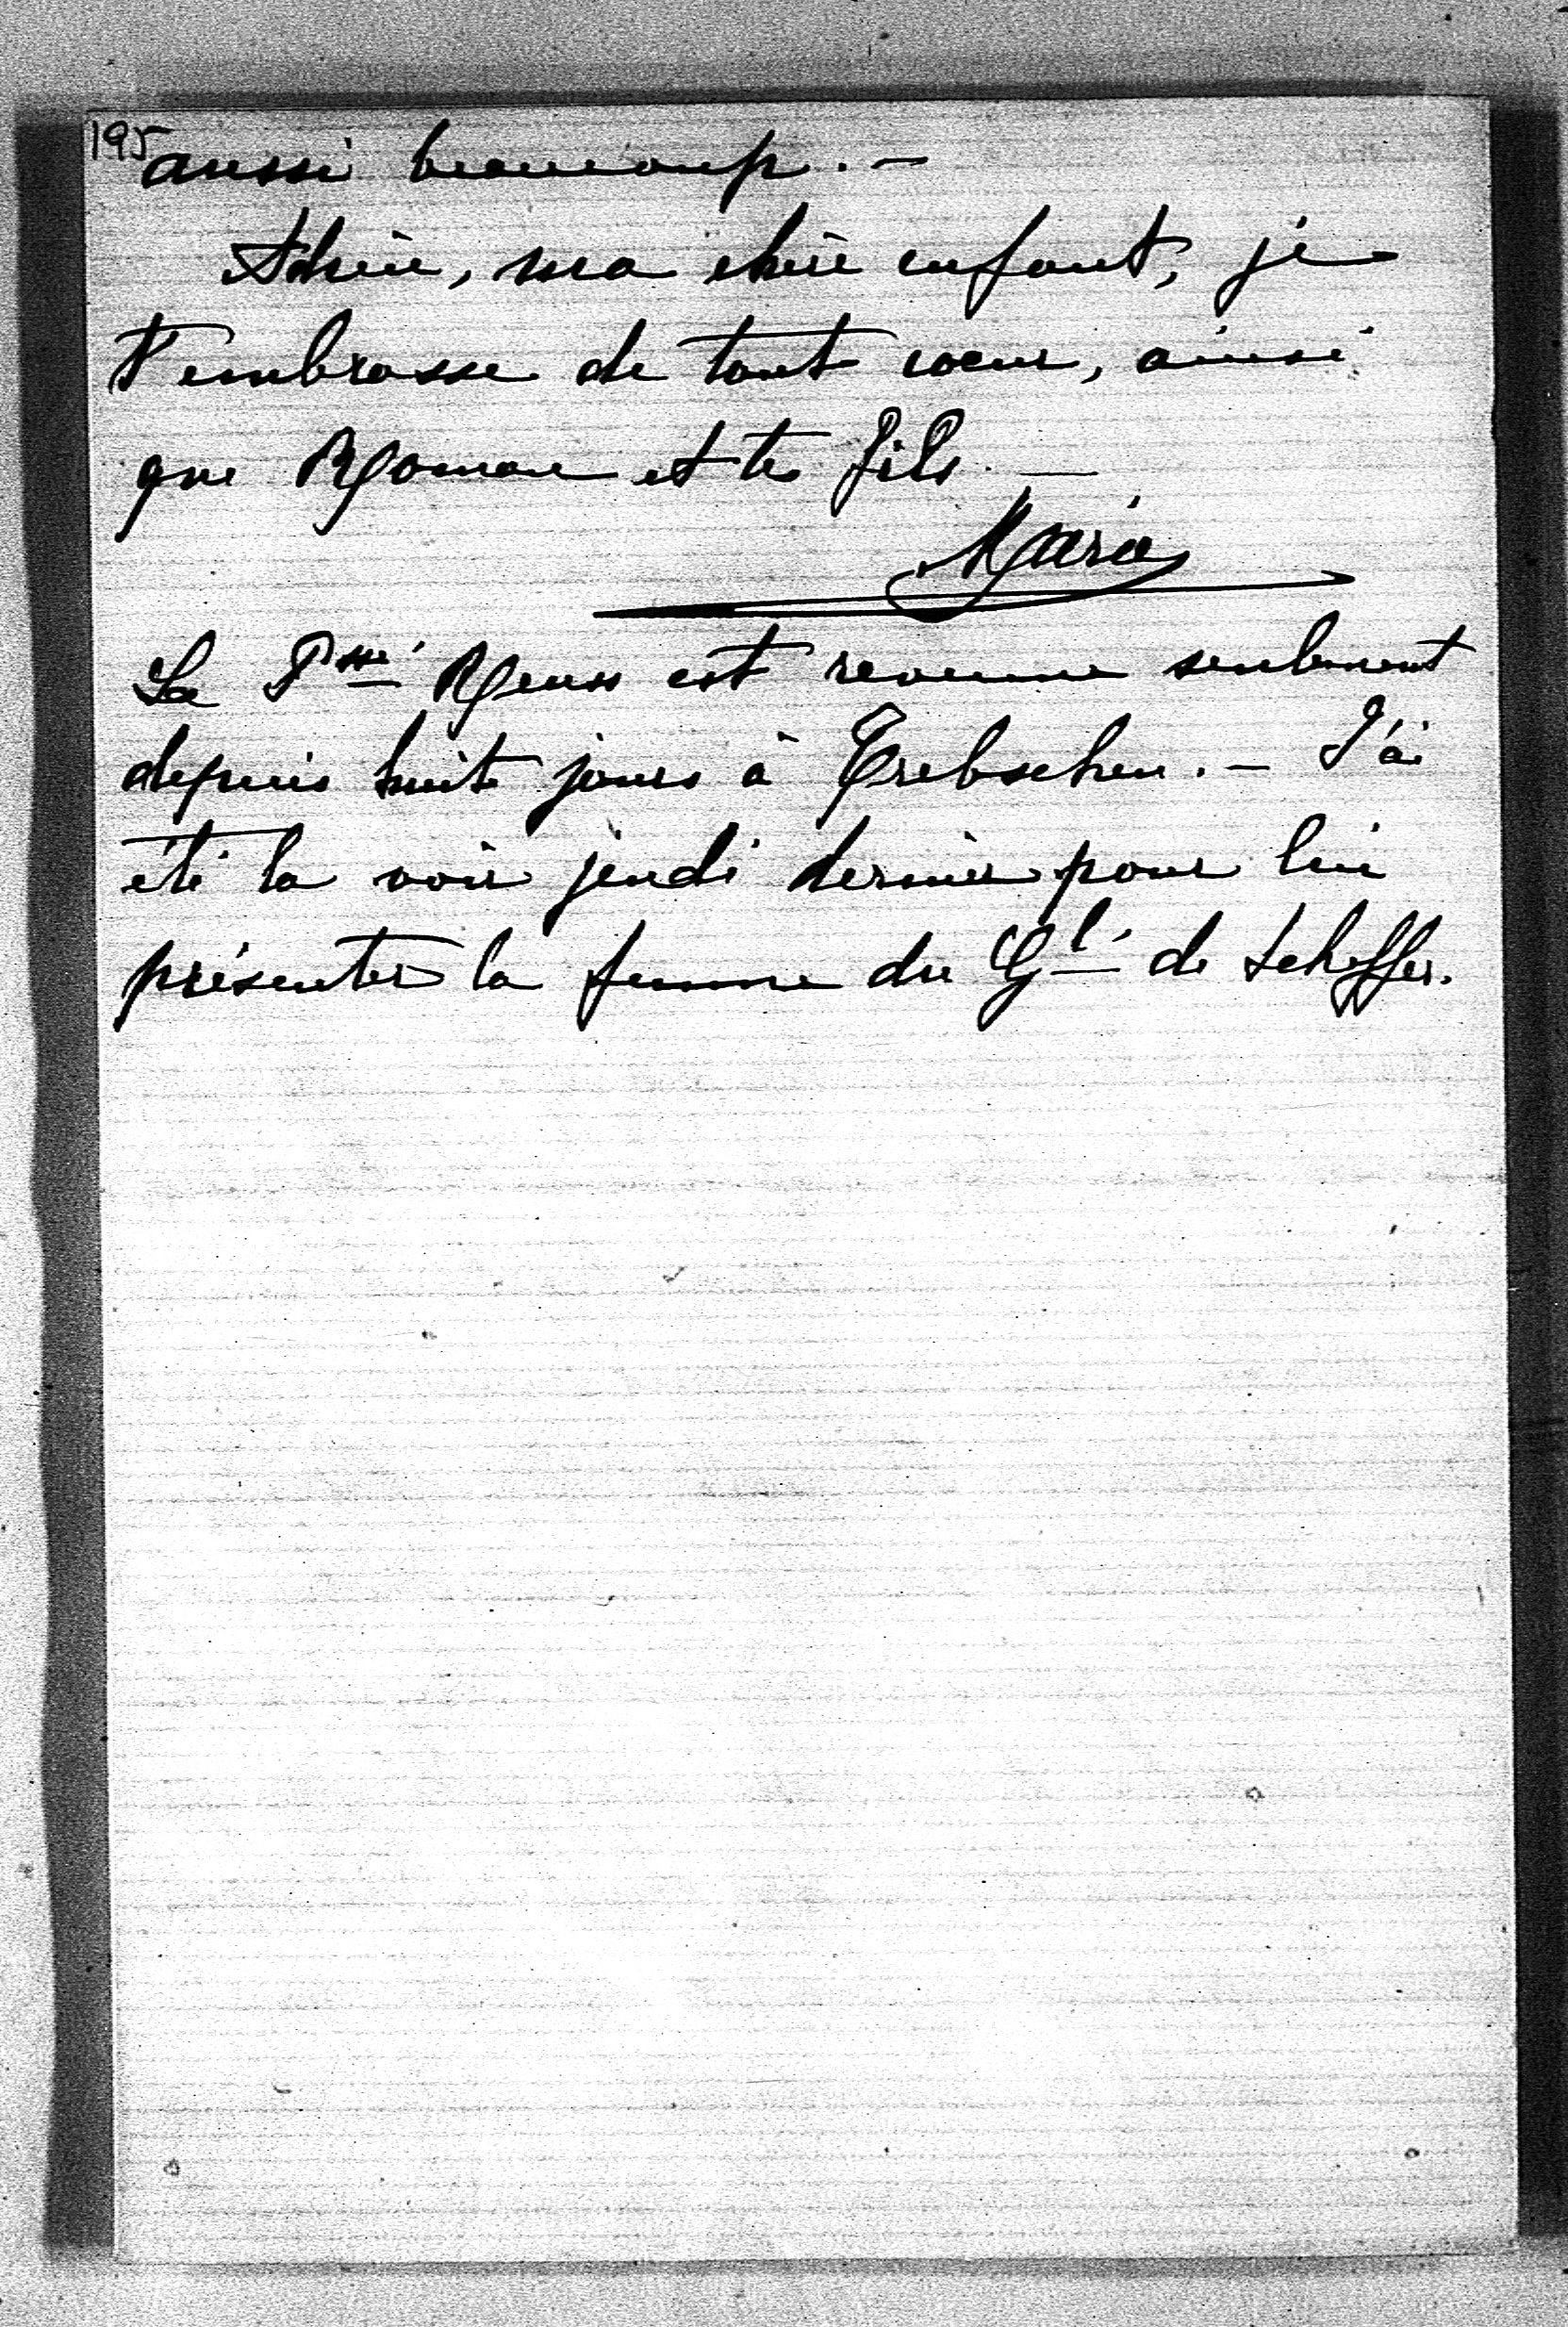 195
aussi beaucoup. —
Adieu, ma chère enfant, je
t'embrasse de tout coeur, ainsi
que Roman et tes fils. —
Marie
La Psse Reuss est revenue seulement
depuis huit jours à Trebschen. — J'ai
été la voir jeudi dernier pour lui
présenter la femme du Gl de Scheffer.